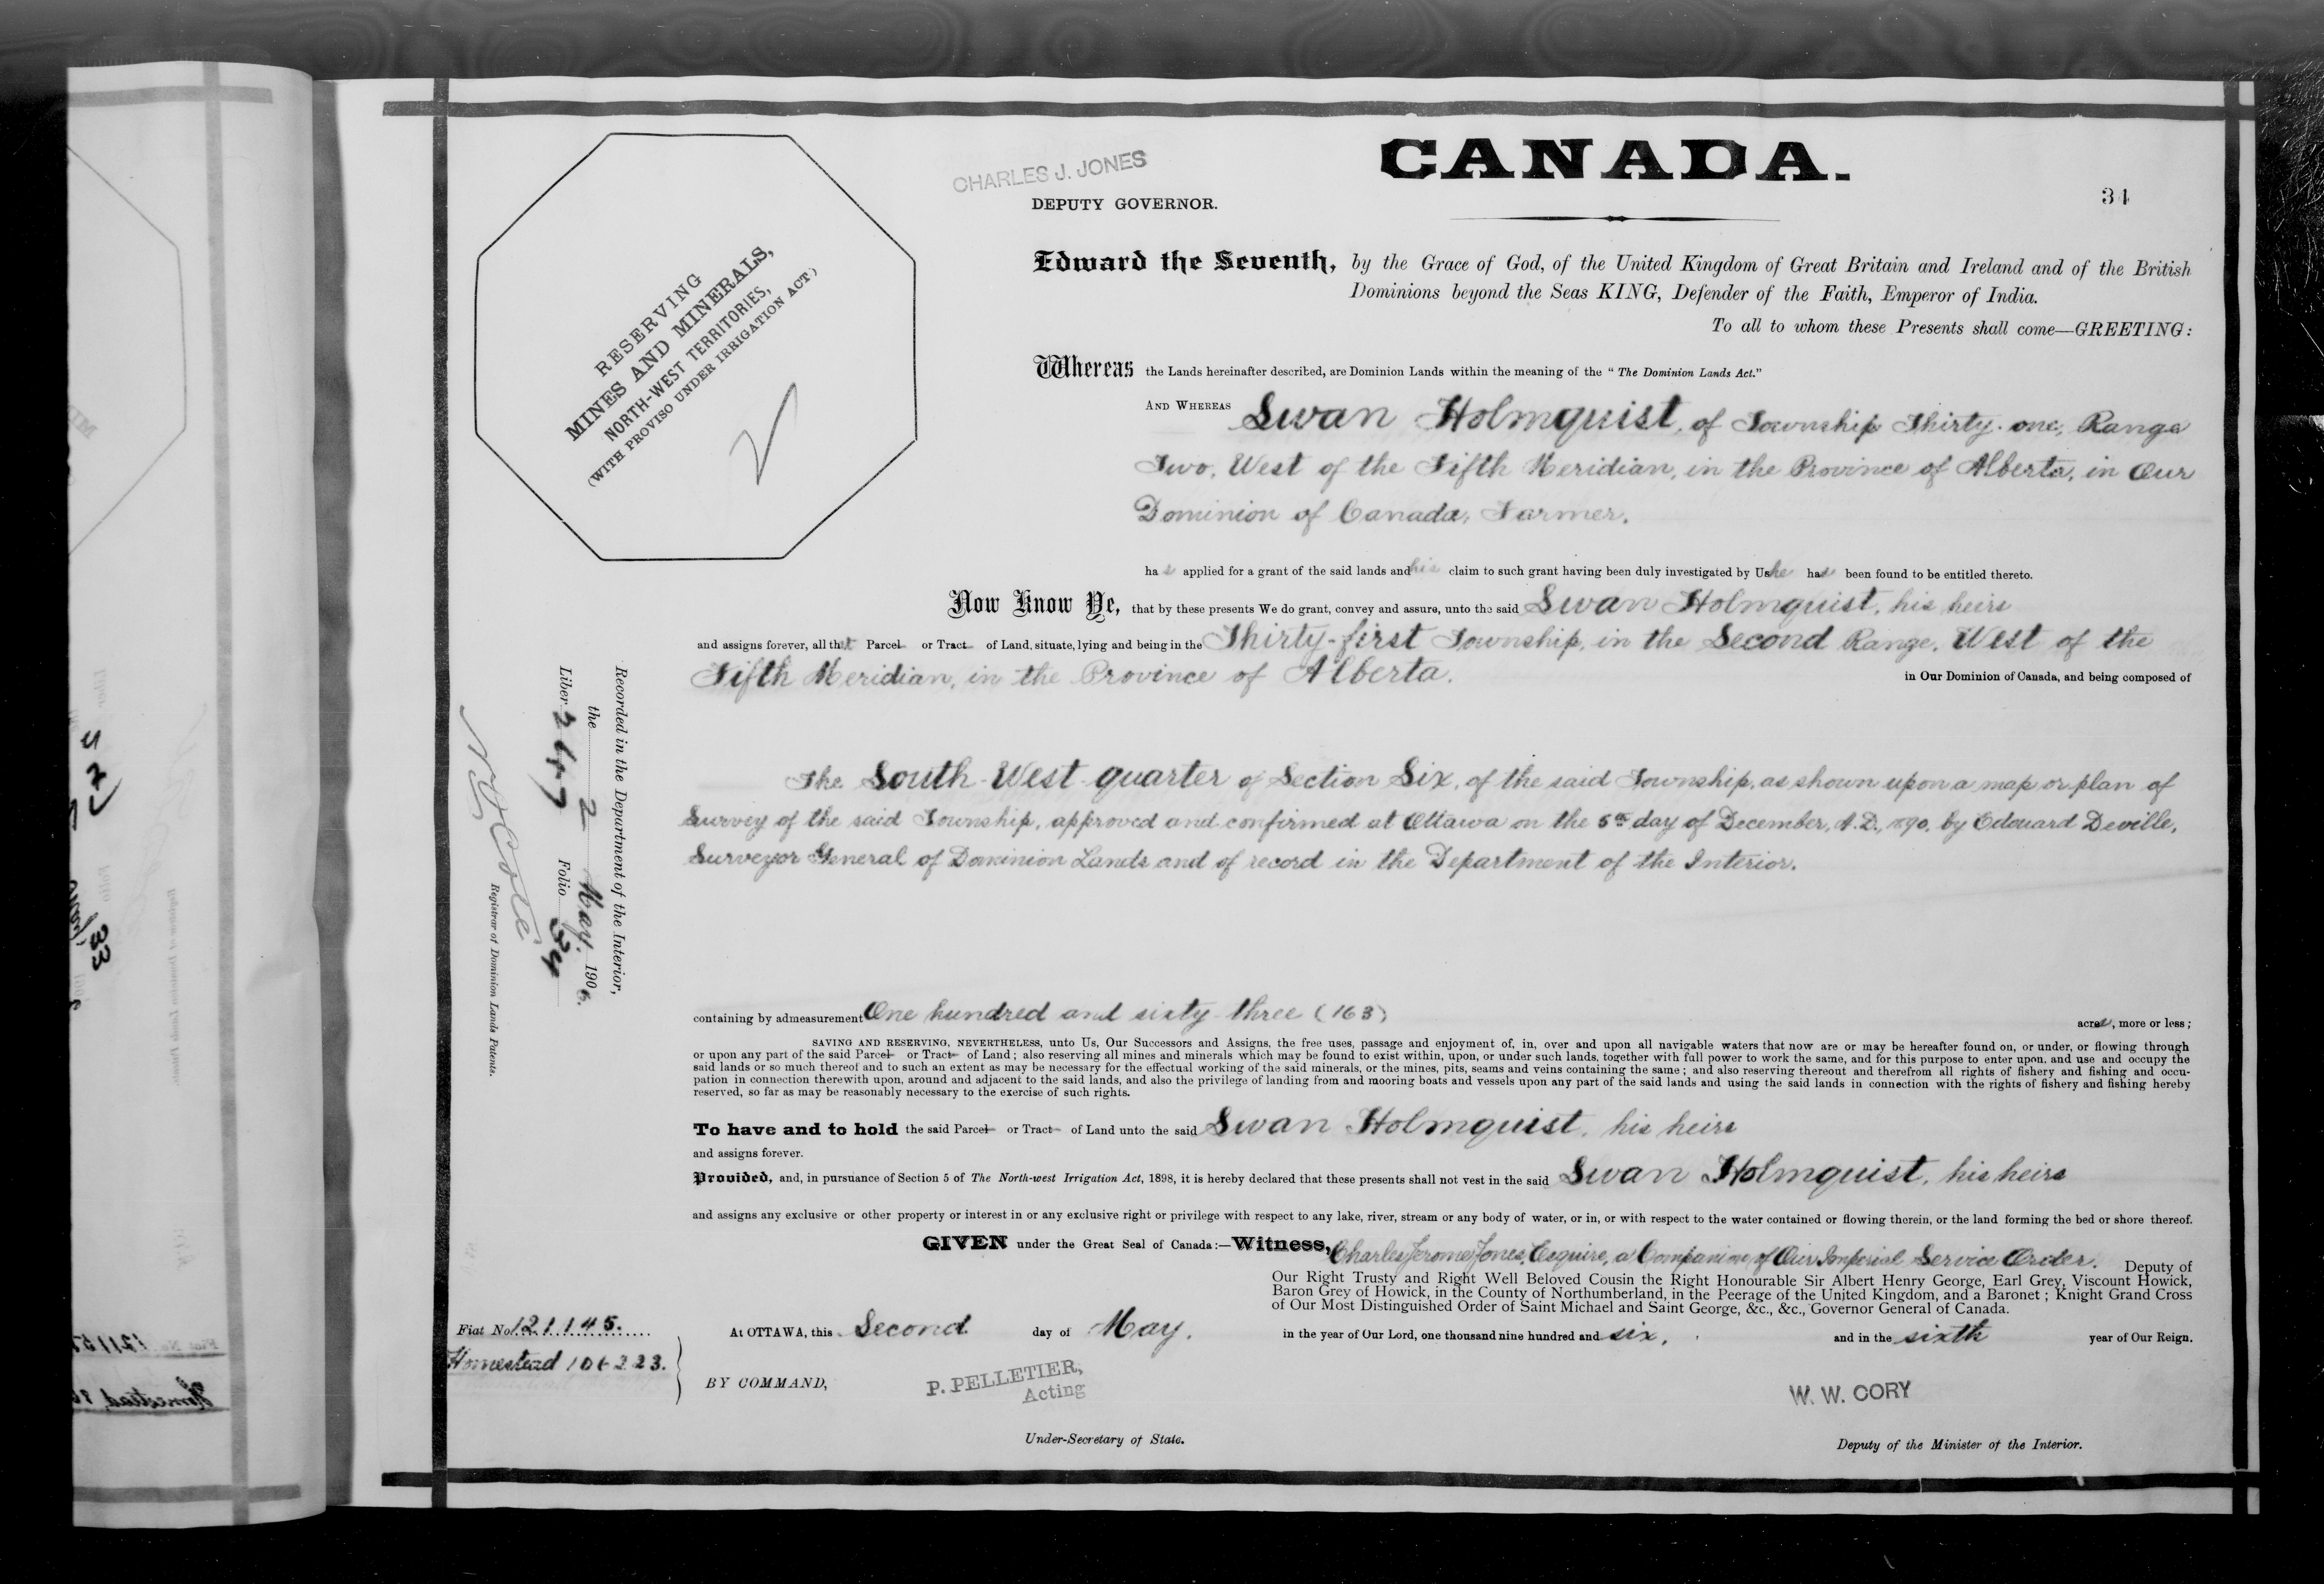 CANADA.
34
CHARLES J. JONES
DEPUTY GOVERNOR.
RESERVING
MINES AND MINERALS,
NORTH-WEST TERRITORIES,
(WITH PROVISO UNDER IRRIGATION ACT.)
Edward the Seventh, by the Grace of God, of the United Kingdom of Great Britain and Ireland and of the British
Dominions beyond the Seas KING, Defender of the Faith, Emperor of India.
To all to whom these Presents shall come—GREETING:
Whereas the Lands hereinafter described, are Dominion Lands within the meaning of the “ The Dominion Lands Act.”
AND WHEREAS Swan Holmquist, of Township Thirty-one, Range
Two, West of the Fifth Meridian, in the Province of Alberta, in Our
Dominion of Canada, Farmer.
has applied for a grant of the said lands and his claim to such grant having been duly investigated by Us he has been found to be entitled thereto.
Now Know Ye, that by these presents We do grant, convey and assure, unto the said Swan Holmquist, his heirs
and assigns forever, all that Parcel or Tract of Land, situate, lying and being in the Thirty-first Township, in the Second Range, West of the
Fifth Meridian, in the Province of Alberta. in Our Dominion of Canada, and being composed of
The South-West quarter of Section Six, of the said Township, as shown upon a map or plan of
Survey of the said Township, approved and confirmed at Ottawa on the 5th day of December, A.D., 1890, by Edouard Deville,
Surveyor General of Dominion Lands and of record in the Department of the Interior.
containing by admeasurement One hundred and sixty-three (163) acres, more or less;
SAVING AND RESERVING, NEVERTHELESS, unto Us, Our Successors and Assigns, the free uses, passage and enjoyment of, in, over and upon all navigable waters that now are or may be hereafter found on, or under, or flowing through
or upon any part of the said Parcel or Tract of Land; also reserving all mines and minerals which may be found to exist within, upon, or under such lands, together with full power to work the same, and for this purpose to enter upon, and use and occupy the
said lands or so much thereof and to such an extent as may be necessary for the effectual working of the said minerals, or the mines, pits, seams and veins containing the same; and also reserving thereout and therefrom all rights of fishery and fishing and occu-
pation in connection therewith upon, around and adjacent to the said lands, and also the privilege of landing from and mooring boats and vessels upon any part of the said lands and using the said lands in connection with the rights of fishery and fishing hereby
reserved, so far as may be reasonably necessary to the exercise of such rights.
To have and to hold the said Parcel or Tract of Land unto the said Swan Holmquist, his heirs
and assigns forever.
Provided, and, in pursuance of Section 5 of The North-west Irrigation Act, 1898, it is hereby declared that these presents shall not vest in the said Swan Holmquist, his heirs
and assigns any exclusive or other property or interest in or any exclusive right or privilege with respect to any lake, river, stream or any body of water, or in, or with respect to the water contained or flowing therein, or the land forming the bed or shore thereof.
GIVEN under the Great Seal of Canada:—Witness, Charles Jerome Jones, Esquire, a Companion of Our Imperial Service Order. Deputy of
Our Right Trusty and Right Well Beloved Cousin the Right Honourable Sir Albert Henry George, Earl Grey, Viscount Howick,
Baron Grey of Howick, in the County of Northumberland, in the Peerage of the United Kingdom, and a Baronet; Knight Grand Cross
of Our Most Distinguished Order of Saint Michael and Saint George, &c., &c., Governor General of Canada.
At OTTAWA, this Second day of May, in the year of Our Lord, one thousand nine hundred and six, and in the sixth year of Our Reign.
BY COMMAND,
P. PELLETIER,
Acting
Under-Secretary of State.
W. W. CORY
Deputy of the Minister of the Interior.
Recorded in the Department of the Interior,
the 2 May 1906.
Liber 247 Folio 34
Registrar of Dominion Lands Patents.
Fiat No. 121145.
Homestead 106223.